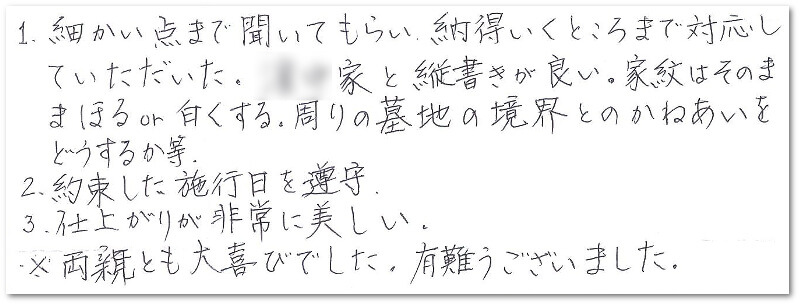 1. 細かい点まで聞いてもらい、納得いくところまで対応し
ていただいた。 家と縦書きが良い。家紋はそのま
まほる or 白くする。周りの墓地の境界とのかねあいを
どうするか等.
2. 約束した施行日を遵守.
3. 仕上がりが非常に美しい。
※ 両親とも大喜びでした。有難うございました。